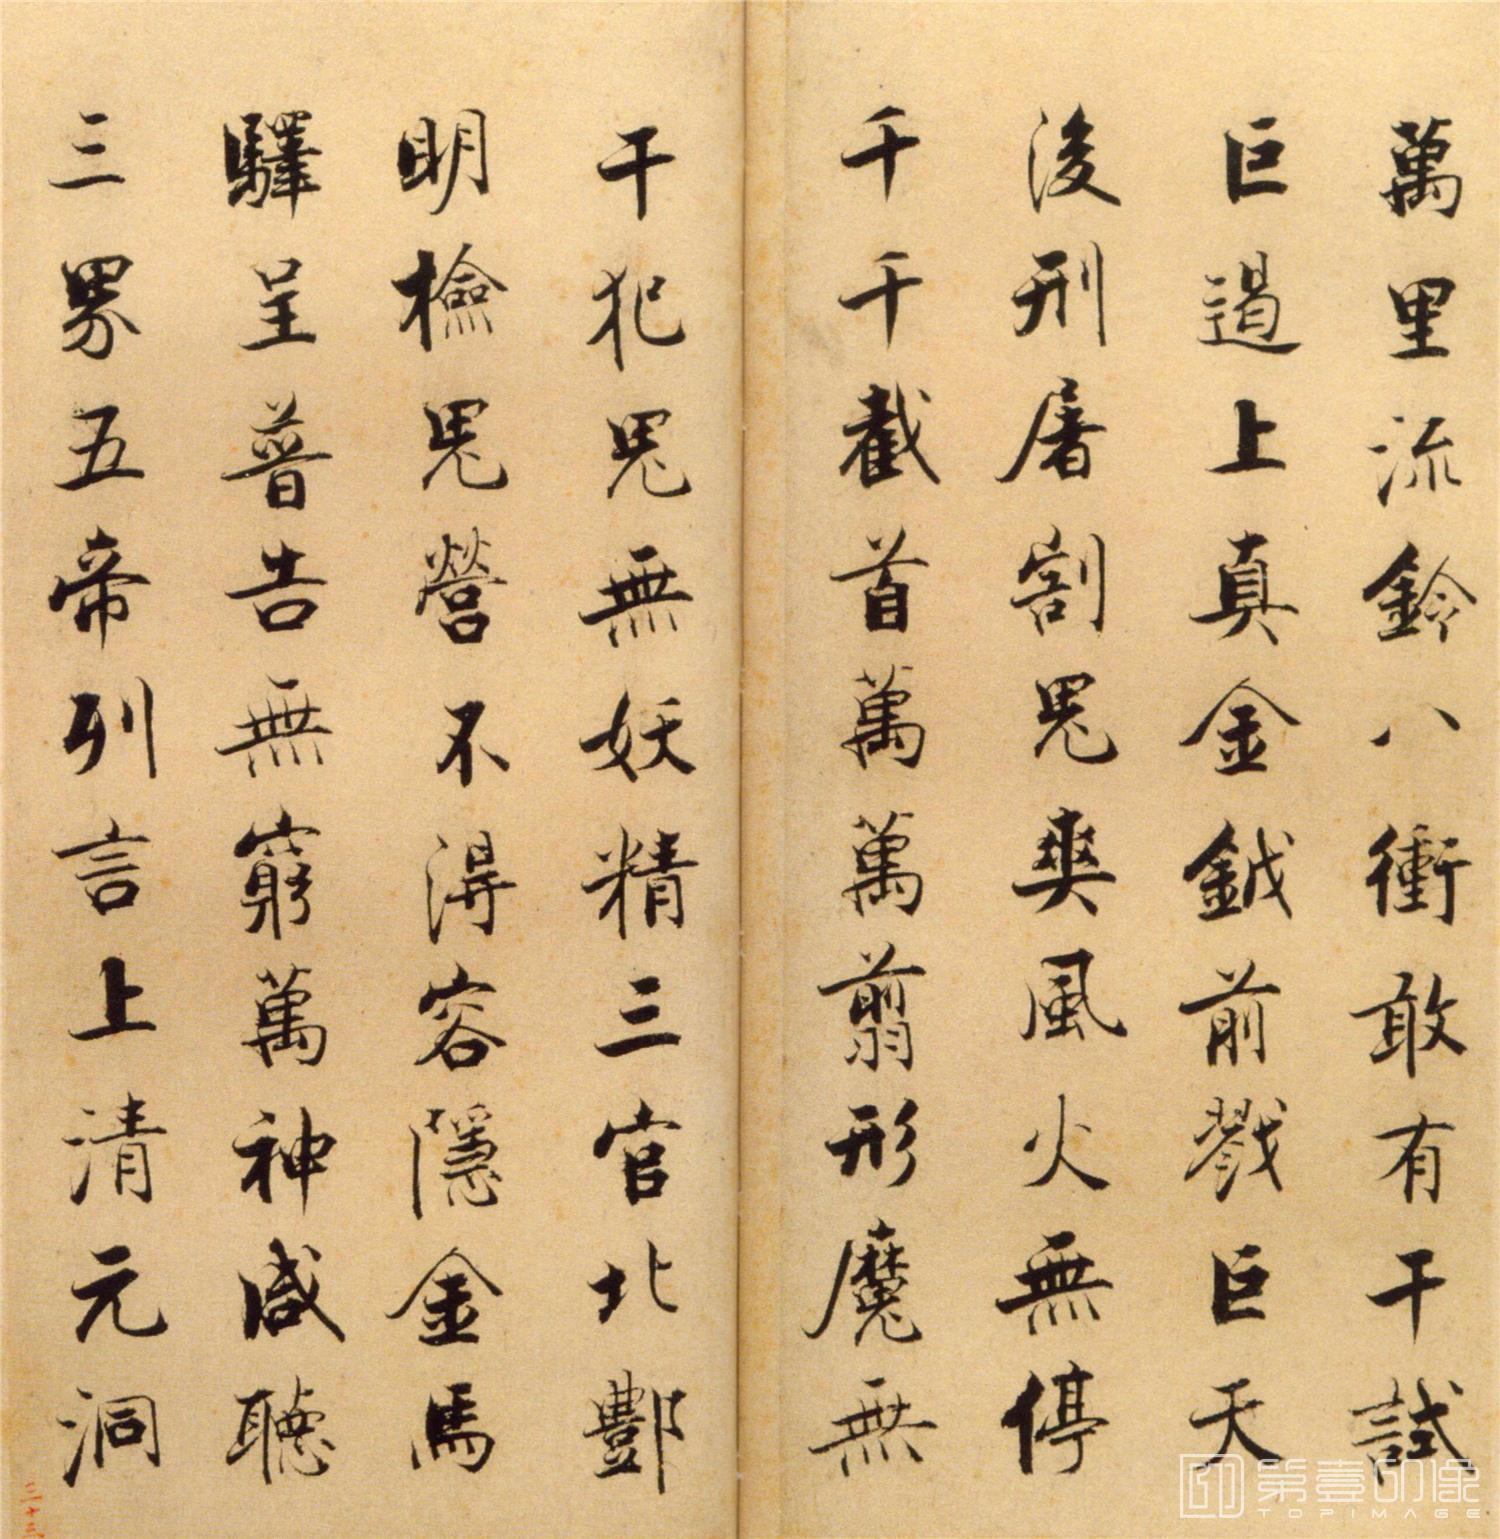 萬里流鈴八衝敢有干試
巨遏上真金鉞前戮巨天
後刑屠割鬼爽風火無停
千千截首萬萬翦形魔無
干犯鬼無妖精三官北酆
明檢鬼營不得容隱金馬
驛呈普告無窮萬神咸聽
三界五帝列言上清元洞
三十三
第壹印像
TOPIMAGE